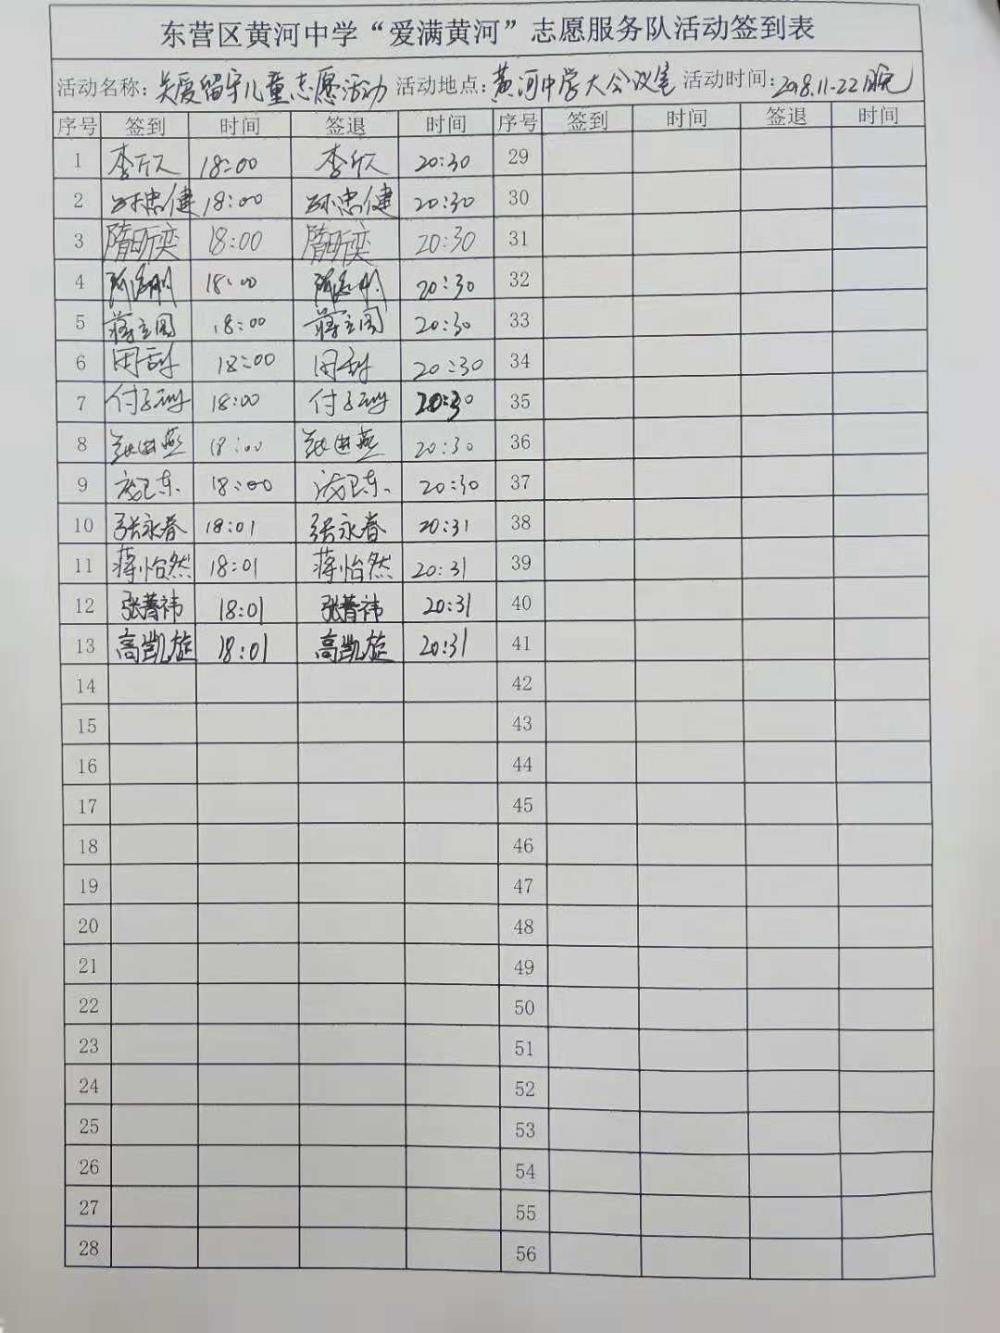 东营区黄河中学“爱满黄河”志愿服务队活动签到表
活动名称:关爱留守儿童志愿活动 活动地点:黄河中学大会议室 活动时间:2018.11.22晚
序号 签到 时间 签退 时间 序号 签到 时间 签退 时间
1 李欣 18:00 李欣 20:30 29
2 忠健 18:00 忠健 20:30 30
3 隋昕奕 18:00 隋昕奕 20:30 31
4 18:00 20:30 32
5 蒋立国 18:00 蒋立国 20:30 33
6 18:00 20:30 34
7 付 18:00 付 20:30 35
8 燕 18:00 燕 20:30 36
9 庞卫东 18:00 庞卫东 20:30 37
10 张永春 18:01 张永春 20:31 38
11 蒋怡然 18:01 蒋怡然 20:31 39
12 张菩祎 18:01 张菩祎 20:31 40
13 高凯旋 18:01 高凯旋 20:31 41
14 42
15 43
16 44
17 45
18 46
19 47
20 48
21 49
22 50
23 51
24 52
25 53
26 54
27 55
28 56